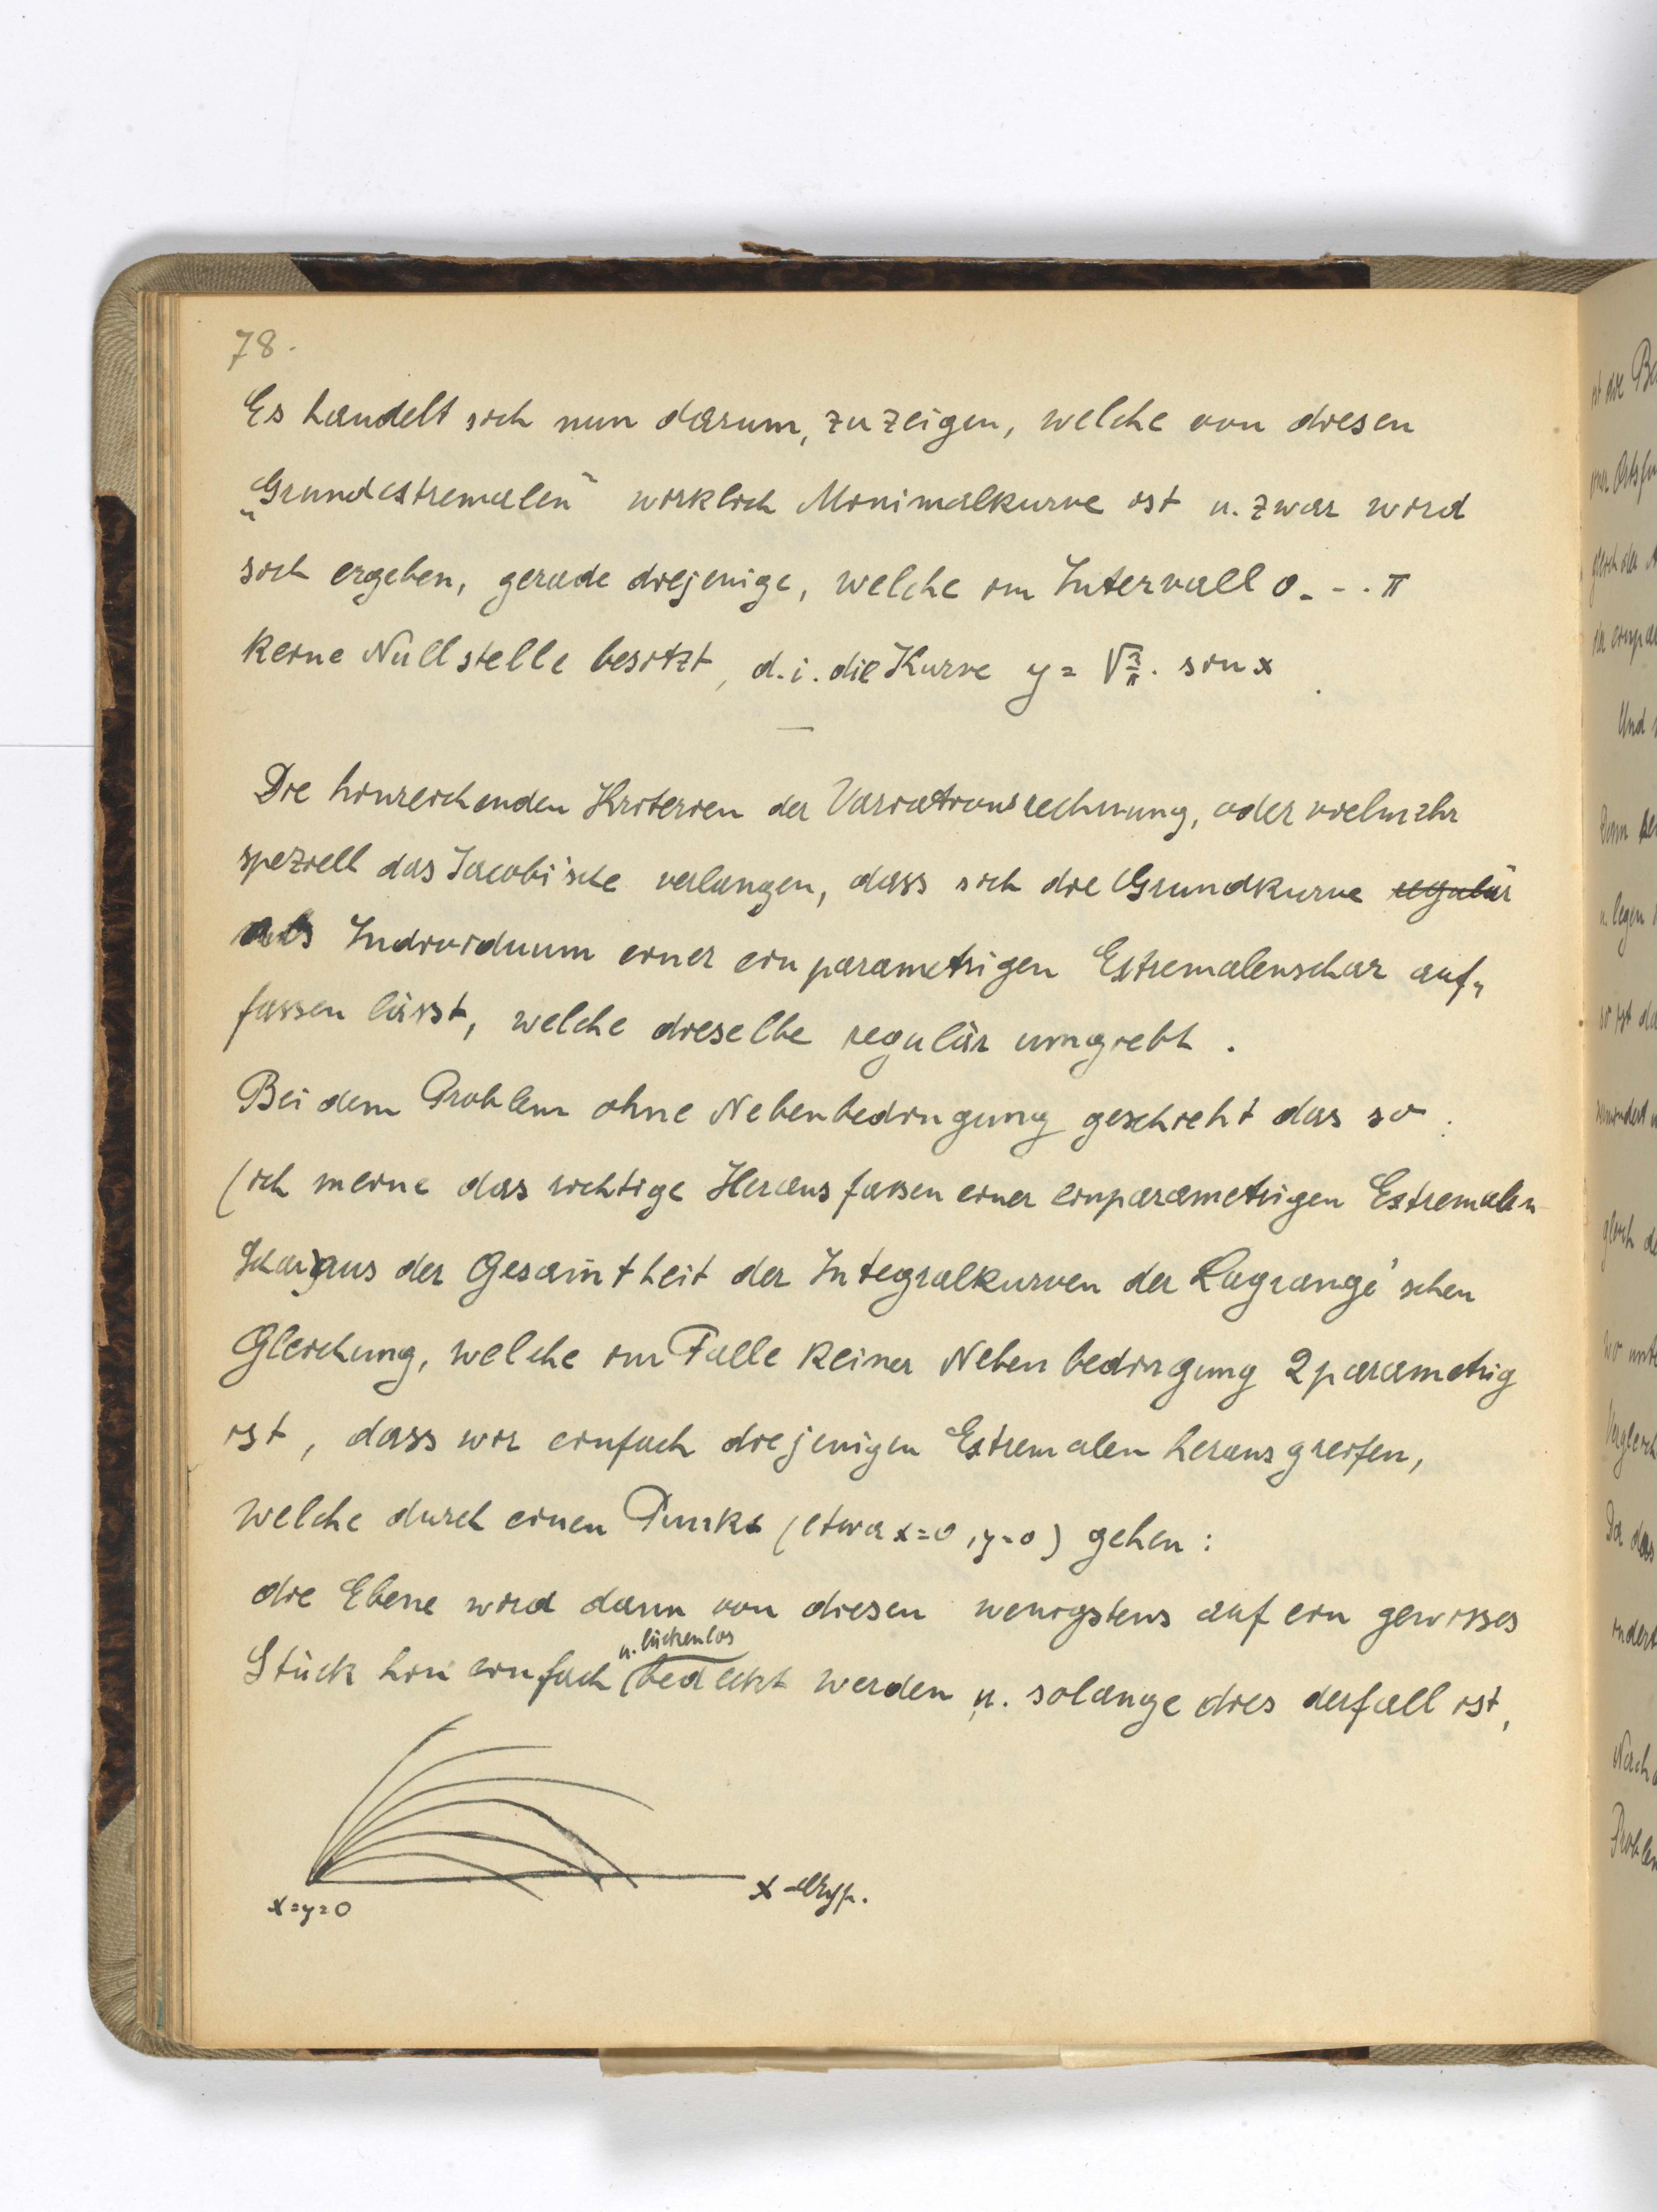 78.
Es handelt sich nun darum, zu zeigen, welche von diesen
„Grundextremalen“ wirklich Minimalkurve ist u. zwar wird
sich ergeben, gerade diejenige, welche im Intervall 0 - - . π
keine Nullstelle besitzt, d. i. die Kurve y = √2/π . sin x .
Die hinreichenden Kriterien der Variationsrechnung, oder vielmehr
speziell das Jacobi'sche verlangen, dass sich die Grundkurve regulär
als Individuum einer einparametrigen Extremalenschar auf„
fassen lässt, welche dieselbe regulär umgiebt .
Bei dem Problem ohne Nebenbedingung geschieht das so :
(ich meine das richtige Herausfassen einer einparametrigen Extremalen
schar) aus der Gesamtheit der Integralkurven der Lagrange'schen
Gleichung, welche im Falle keiner Nebenbedingung 2parametrig
ist, dass wir einfach diejenigen Extremalen herausgreifen,
welche durch einen Punkt (etwa x=0, y=0) gehen :
die Ebene wird dann von diesen wenigstens auf ein gewisses
u. lückenlos
Stück hin einfach bedeckt werden u. solange dies der fall ist,
x=y=0
x -